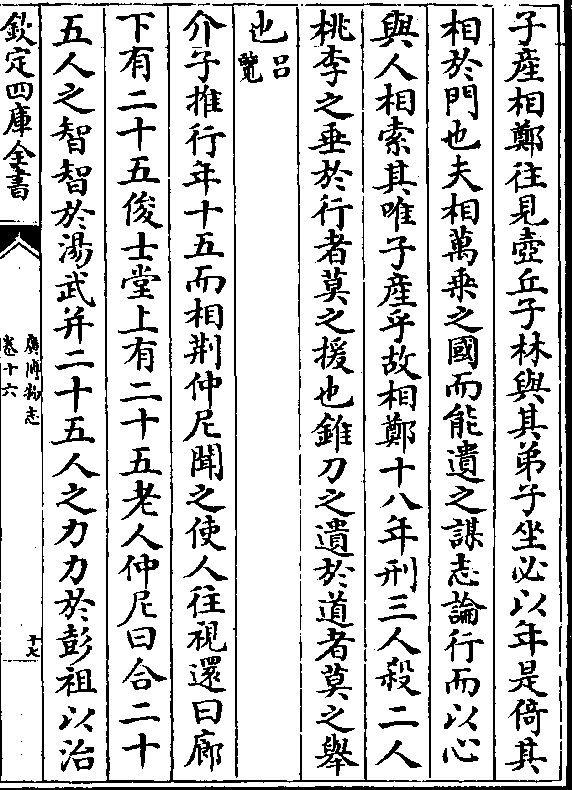 子產相鄭往見壺丘子林與其弟子坐必以年是倚其
相於門也夫相萬乘之國而能遺之謀志論行而以心
與人相索其唯子產乎故相鄭十八年刑三人殺二人
桃李之垂於行者莫之援也錐刀之遺於道者莫之舉
也呂覽
介子推行年十五而相荆仲尼聞之使人往視還曰廊
下有二十五俊士堂上有二十五老人仲尼曰合二十
五人之智智於湯武并二十五人之力力於彭祖以治
欽定四庫全書
廣博物志
卷十六
十七